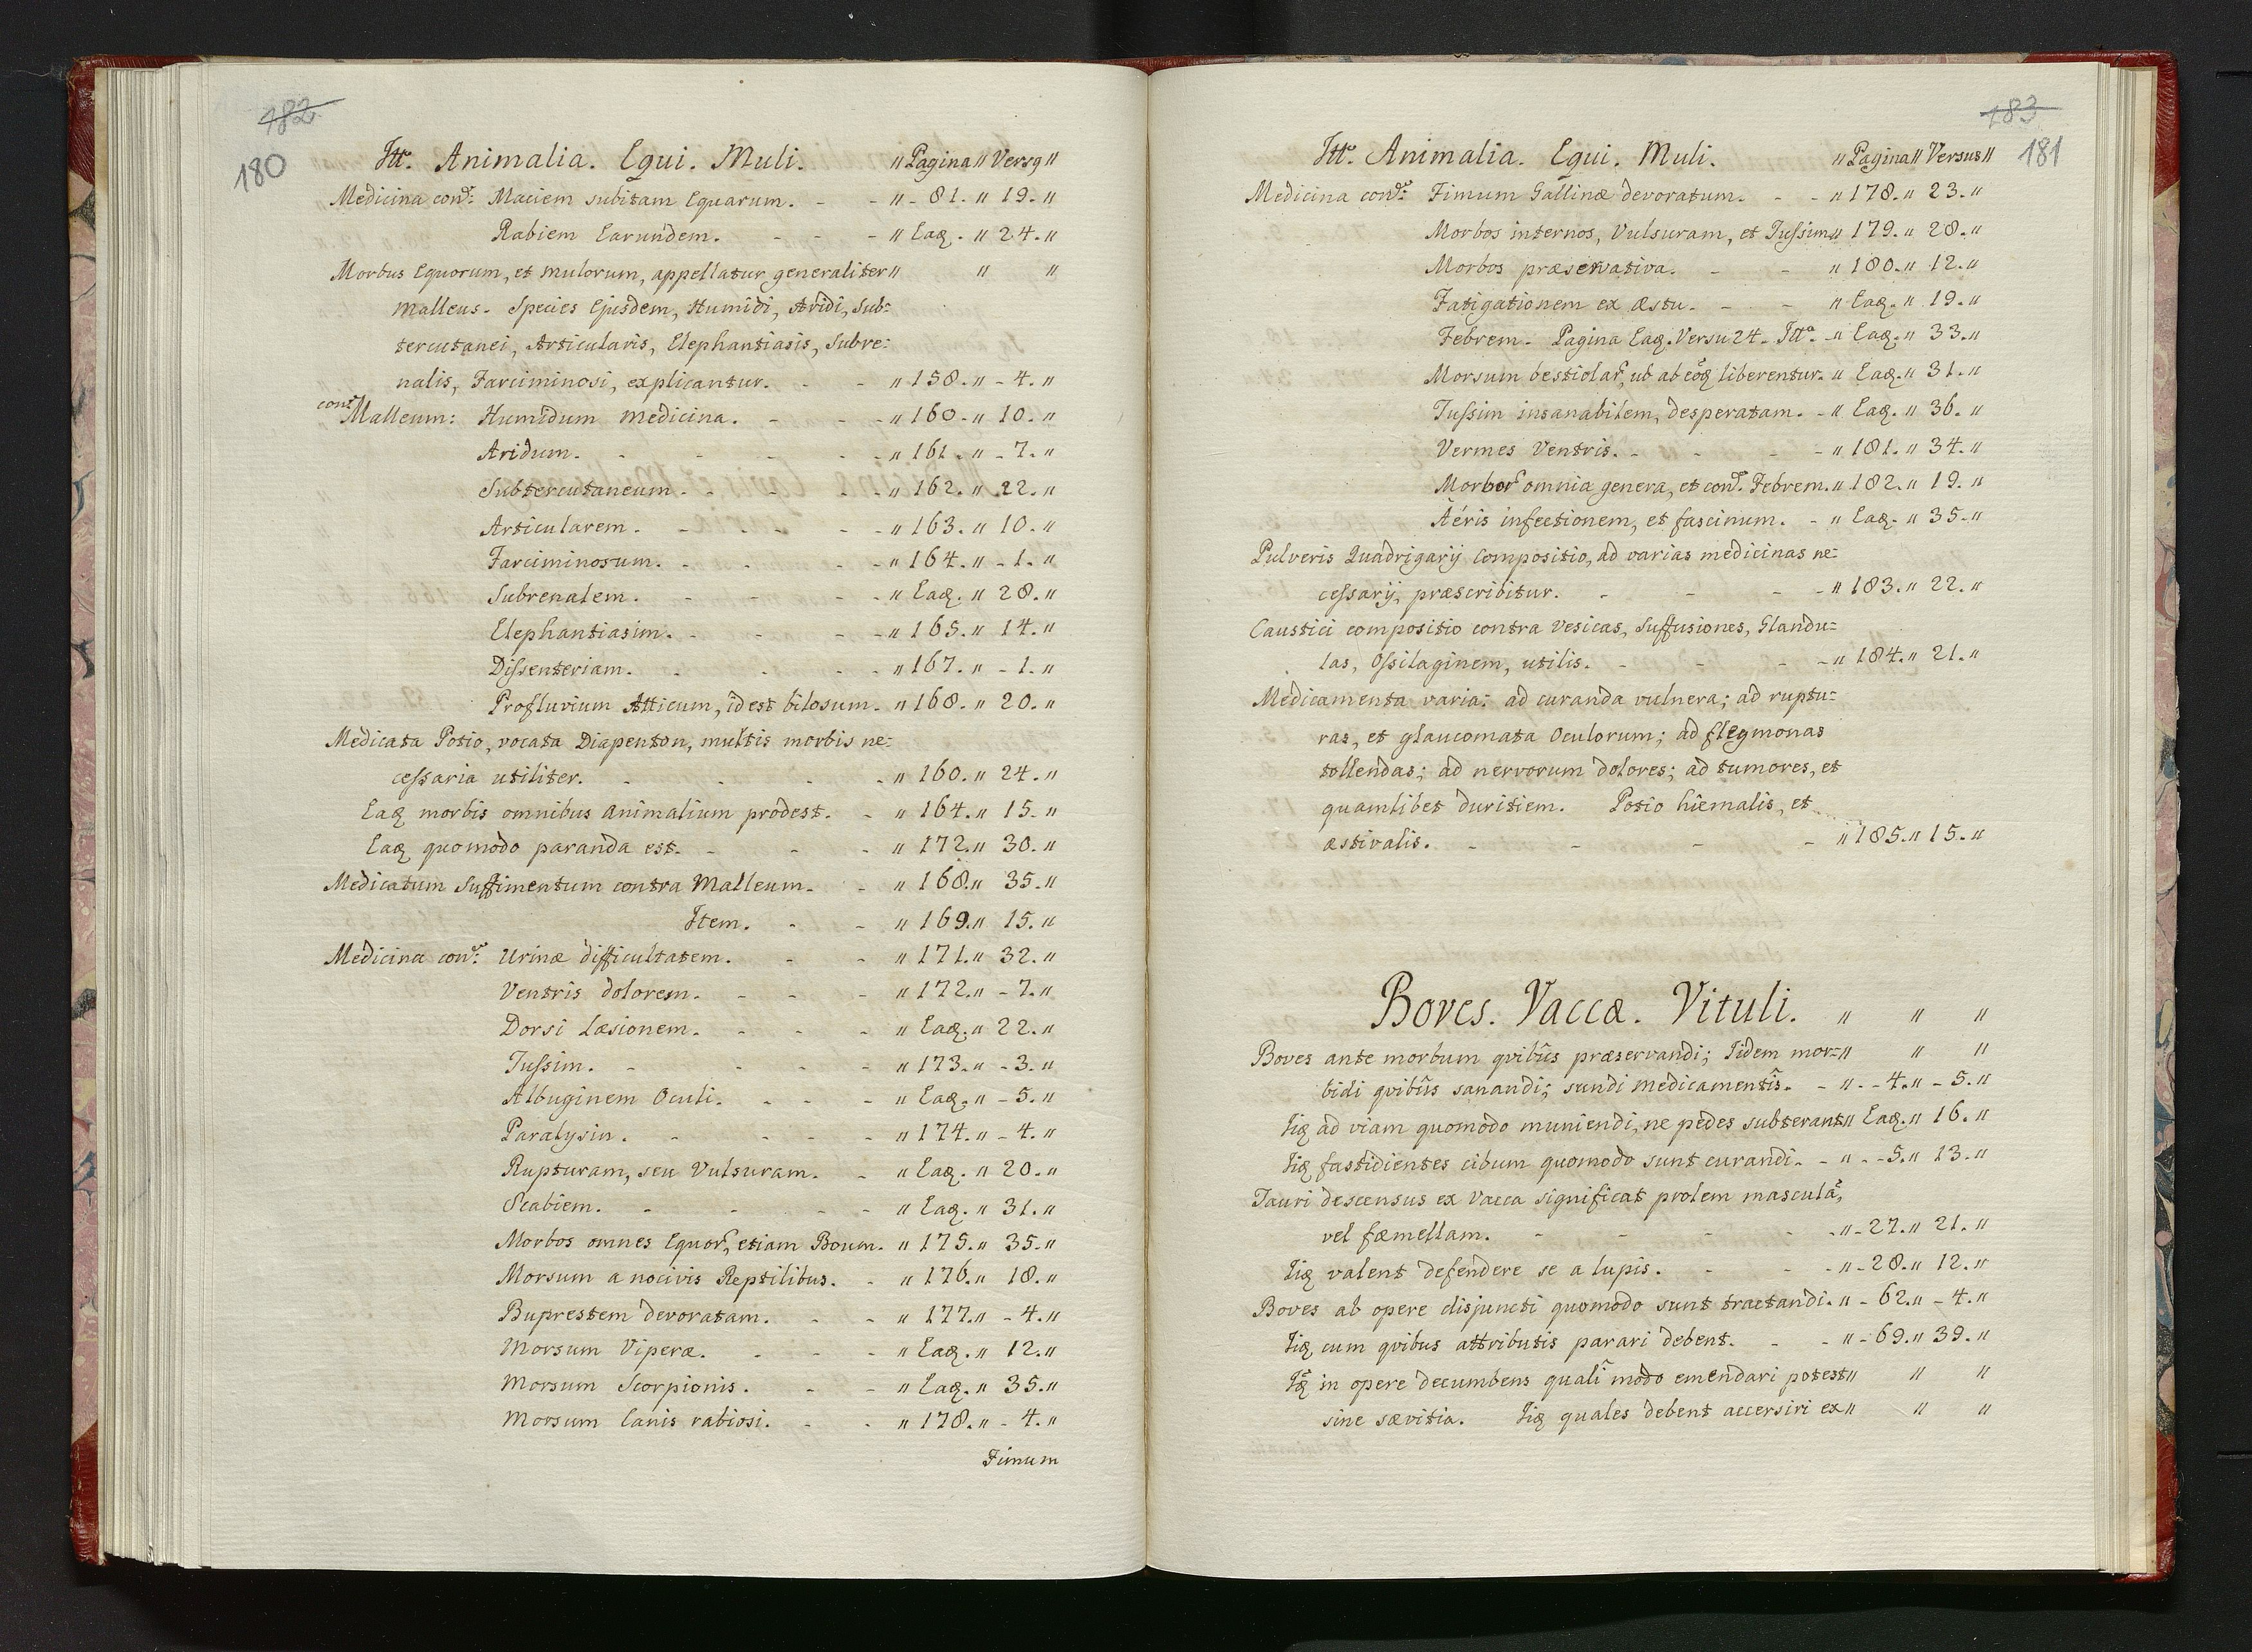 182
180
Itt. Animalia. Equi. Muli. " Pagina " Versq "
Medicina contr: Maciem subitam Equarum. - - " - 81. " 19. "
Rabiem Earundem. - - - " Eaq. " 24. "
Morbus Equorum, et mulorum, appellatur generaliter " " "
malleus. Species Ejusdem, Humidi, Aridi, Sub=
tercutanei, Articularis, Elephantiasis, Subre=
nalis, Farciminosi, explicantur. - - " 158. " - 4. "
contr Malleum: Humidum medicina. - - - " 160. " 10. "
Aridum. - - - - - " 161. " - 7. "
Subtercutaneum. - - - - " 162. " 22. "
Articularem. - - - - - " 163. " 10. "
Farciminosum. - - - - " 164. " - 1. "
Subrenalem. - - - - " Eaq. " 28. "
Elephantiasim. - - - - " 165. " 14. "
Dissenteriam. - - - - " 167. " - 1. "
Profluvium Atticum, id est bilosum. " 168. " 20. "
Medicata Potio, vocata Diapenton, multis morbis ne=
cessaria utiliter. - - - - " 160. " 24. "
Eaq morbis omnibus animalium prodest. - " 164. " 15. "
Eaq quomodo paranda est. - - - " 172. " 30. "
Medicatum Suffimentum contra Malleum. - " 168. " 35. "
Item. - - " 169. " 15. "
Medicina contr: Urinæ difficultatem. - - " 171. " 32. "
Ventris dolorem. - - - " 172. " - 7. "
Dorsi læsionem. - - - " Eaq. " 22. "
Tussim. - - - - " 173. " - 3. "
Albuginem Oculi. - - - " Eaq. " - 5. "
Paralysin. - - - - " 174. " - 4. "
Rupturam, seu Vulsuram. - " Eaq. " 20. "
Scabiem. - - - - " Eaq. " 31. "
Morbos omnes Equor, etiam Boum. " 175. " 35. "
Morsum a nocivis Reptilibus. - " 176. " 18. "
Buprestem devoratam. - - " 177. " - 4. "
Morsum Viperæ. - - - " Eaq. " 12. "
Morsum Scorpionis. - - " Eaq. " 35. "
Morsum Canis rabiosi. - - " 178. " - 4. "
Fimum
183
181
Itt. Animalia. Equi. Muli. " Pagina " Versus "
Medicina contr: Fimum Gallinæ devoratum. - - " 178. " 23. "
Morbos internos, Vulsuram, et Tussim " 179. " 28. "
Morbos præservativa. - - " 180. " 12. "
Fatigationem ex æstu. - - " Eaq. " 19. "
Febrem. Pagina Eaq. Versu 24. Itt. - " Eaq. " 33. "
Morsum bestiolar, ut ab eoq liberentur. " Eaq. " 31. "
Tussim insanabilem, desperatam. - " Eaq. " 36. "
Vermes Ventris. - - - - " 181. " 34. "
Morbor omnia genera, et contr. Febrem. " 182. " 19. "
Aéris infectionem, et fascinum. - " Eaq. " 35. "
Pulveris Quadrigarij compositio, ad varias medicinas ne=
cessarij, præscribitur. - - - - " 183. " 22. "
Caustici compositio contra Vesicas, Suffusiones, Glandu=
las, Ossilaginem, utilis. - - - - " 184. " 21. "
Medicamenta varia: ad curanda vulnera; ad ruptu=
ras, et glaucomata Oculorum; ad flegmonas
tollendas; ad nervorum dolores; ad tumores, et
quamlibet duritiem. Potio hiemalis, et
æstivalis. - - - - " 185. " 15. "
Boves. Vaccæ. Vituli. " " "
Boves ante morbum qvibus præservandi; Iidem mor= " " "
bidi qvibus sanandi; sundi medicamentis. - " - - 4. " - 5. "
Iiq ad viam quomodo muniendi, ne pedes subterant " Eaq. " 16. "
Iiq fastidientes cibum quomodo sunt curandi. - " - - 5. " 13. "
Tauri descensus ex Vacca significat prolem masculã,
vel fæmellam. - - - - " - 27. " 21. "
Iiq valent defendere se a lupis. - - - " - 28. " 12. "
Boves ab opere disjuncti quomodo sunt tractandi. " - 62. " - 4. "
Iiq cum qvibus attributis parari debent. - - " - 69. " 39. "
Iq in opere decumbens quali modo emendari potest " " "
sine sævitia. Iiq quales debent accersiri ex " " "